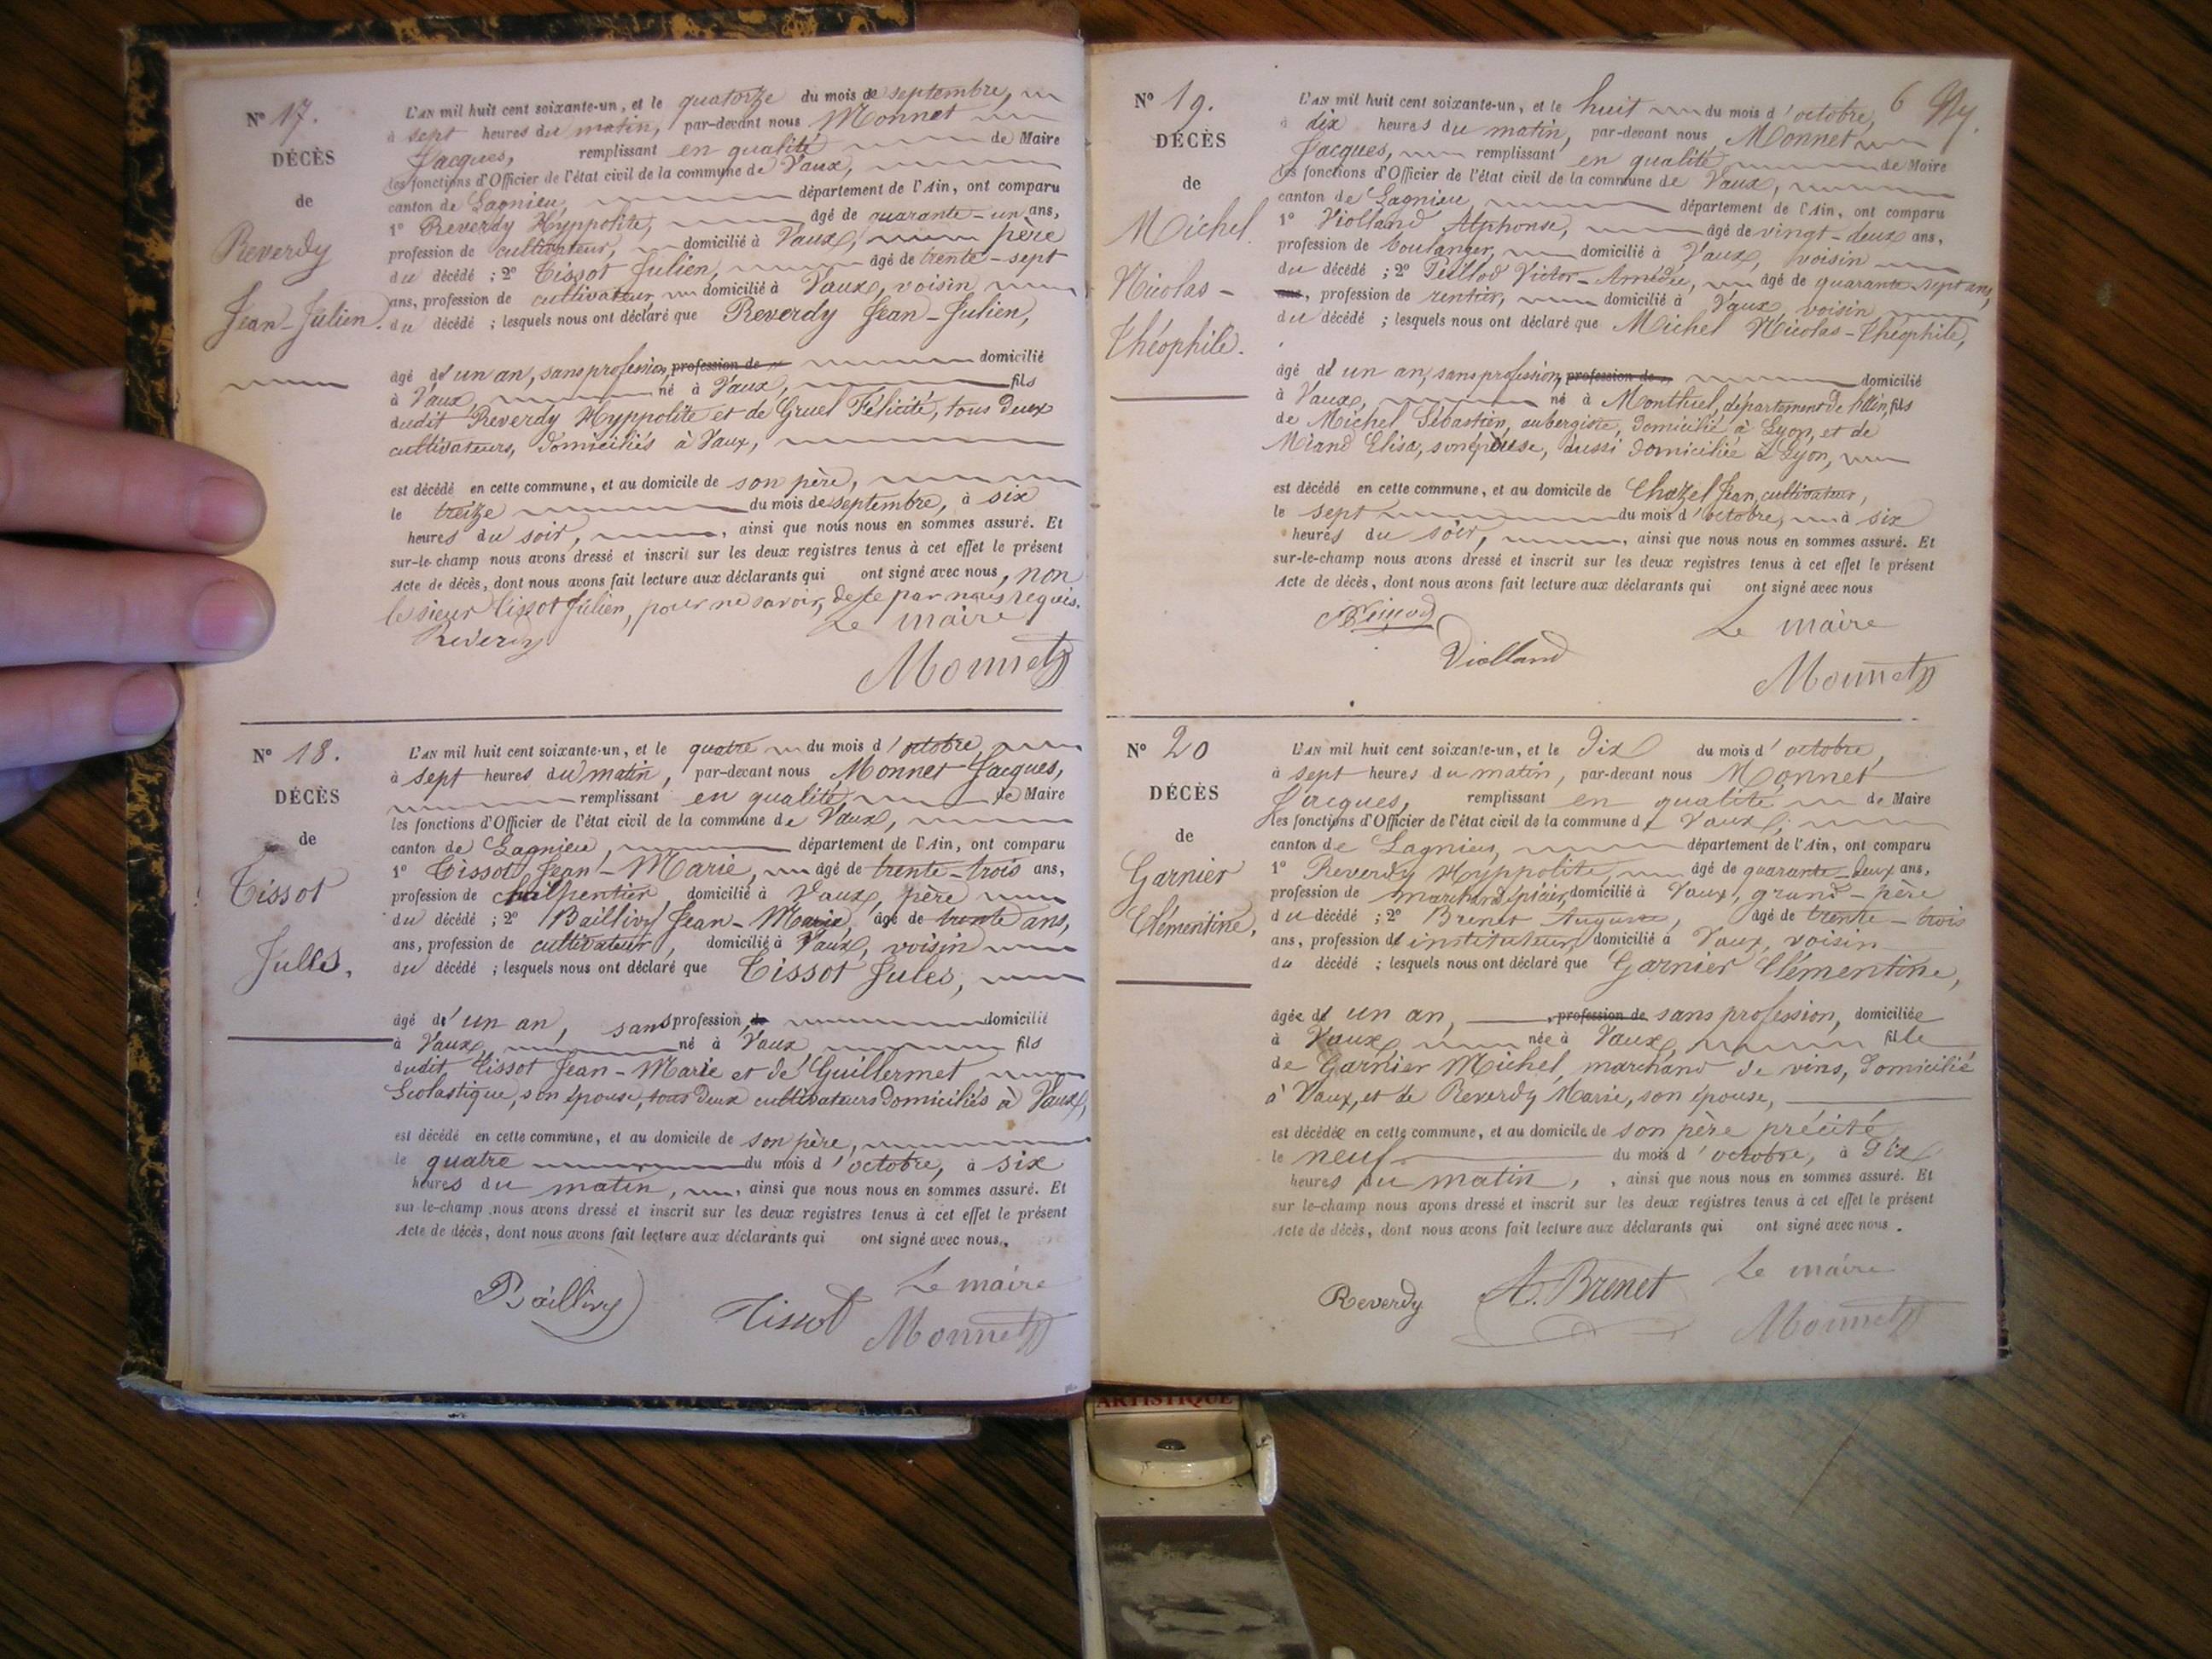 N° 17.
DÉCÈS
de
Reverdy
Jean-Julien.
L'AN mil huit cent soixante-un, et le quatorze du mois de septembre,
à sept heures du matin, par-devant nous Monnet
Jacques, remplissant en qualité de Maire
les fonctions d'Officier de l'état civil de la commune de Vaux,
canton de Lagnieu, département de l'Ain, ont comparu
1° Reverdy Hyppolite, âgé de quarante-un ans,
profession de cultivateur, domicilié à Vaux, père
du décédé ; 2° Tissot Julien, âgé de trente-sept
ans, profession de cultivateur domicilié à Vaux, voisin
du décédé ; lesquels nous ont déclaré que Reverdy Jean-Julien,
âgé d'un an, sans profession, profession de domicilié
à Vaux, né à Vaux, fils
dudit Reverdy Hyppolite et de Gruel Félicité, tous deux
cultivateurs, domiciliés à Vaux,
est décédé en cette commune, et au domicile de son père,
le treize du mois de septembre, à six
heures du soir, ainsi que nous nous en sommes assuré. Et
sur-le-champ nous avons dressé et inscrit sur les deux registres tenus à cet effet le présent
Acte de décès, dont nous avons fait lecture aux déclarants qui ont signé avec nous, non
le sieur Tissot Julien, pour ne savoir, de ce par nous requis.
Reverdy Le maire
Monnet
N° 18.
DÉCÈS
de
Tissot
Jules.
L'AN mil huit cent soixante-un, et le quatre du mois d'octobre,
à sept heures du matin, par-devant nous Monnet Jacques,
remplissant en qualité de Maire
les fonctions d'Officier de l'état civil de la commune de Vaux,
canton de Lagnieu, département de l'Ain, ont comparu
1° Tissot Jean-Marie, âgé de trente-trois ans,
profession de charpentier domicilié à Vaux, père
du décédé ; 2° Baillivy Jean-Marie, âgé de trente ans,
ans, profession de cultivateur, domicilié à Vaux, voisin
du décédé ; lesquels nous ont déclaré que Tissot Jules,
âgé d'un an, sans profession, de domicilié
à Vaux, né à Vaux fils
dudit Tissot Jean-Marie et de Guillermet
Scolastique, son épouse, tous deux cultivateurs domiciliés à Vaux,
est décédé en cette commune, et au domicile de son père,
le quatre du mois d'octobre, à six
heures du matin, ainsi que nous nous en sommes assuré. Et
sur-le-champ nous avons dressé et inscrit sur les deux registres tenus à cet effet le présent
Acte de décès, dont nous avons fait lecture aux déclarants qui ont signé avec nous.
Baillivy Tissot Le maire
Monnet
6
N° 19.
DÉCÈS
de
Michel
Nicolas-
Théophile.
L'AN mil huit cent soixante-un, et le huit du mois d'octobre,
à dix heures du matin, par-devant nous Monnet
Jacques, remplissant en qualité de Maire
les fonctions d'Officier de l'état civil de la commune de Vaux,
canton de Lagnieu, département de l'Ain, ont comparu
1° Violland Alphonse, âgé de vingt-deux ans,
profession de boulanger, domicilié à Vaux, voisin
du décédé ; 2° Victor-Amédée, âgé de quarante-sept ans,
ans, profession de rentier, domicilié à Vaux, voisin
du décédé ; lesquels nous ont déclaré que Michel Nicolas-Théophile,
âgé d'un an, sans profession, profession de domicilié
à Vaux, né à Montluel, département de l'Ain, fils
de Michel Sébastien, aubergiste, domicilié à Lyon, et de
Elisa, son épouse, aussi domiciliée à Lyon,
est décédé en cette commune, et au domicile de Chazel Jean, cultivateur,
le sept du mois d'octobre, à six
heures du soir, ainsi que nous nous en sommes assuré. Et
sur-le-champ nous avons dressé et inscrit sur les deux registres tenus à cet effet le présent
Acte de décès, dont nous avons fait lecture aux déclarants qui ont signé avec nous
Le maire
Violland Monnet
N° 20
DÉCÈS
de
Garnier
Clémentine,
L'AN mil huit cent soixante-un, et le dix du mois d'octobre,
à sept heures du matin, par-devant nous Monnet
Jacques, remplissant en qualité de Maire
les fonctions d'Officier de l'état civil de la commune de Vaux,
canton de Lagnieu, département de l'Ain, ont comparu
1° Reverdy Hyppolite, âgé de quarante-deux ans,
profession de marchand épicier, domicilié à Vaux, grand-père
du décédé ; 2° Brenet Auguste, âgé de trente-trois
ans, profession d'instituteur domicilié à Vaux, voisin
du décédé ; lesquels nous ont déclaré que Garnier Clémentine,
âgée d'un an, profession de sans profession, domiciliée
à Vaux, née à Vaux, fille
de Garnier Michel, marchand de vins, domicilié
à Vaux, et de Reverdy Marie, son épouse,
est décédée en cette commune, et au domicile de son père précité
le neuf du mois d'octobre, à dix
heures du matin, ainsi que nous nous en sommes assuré. Et
sur le-champ nous avons dressé et inscrit sur les deux registres tenus à cet effet le présent
Acte de décès, dont nous avons fait lecture aux déclarants qui ont signé avec nous.
Reverdy A. Brenet Le maire
Monnet
ARTISTIQUE